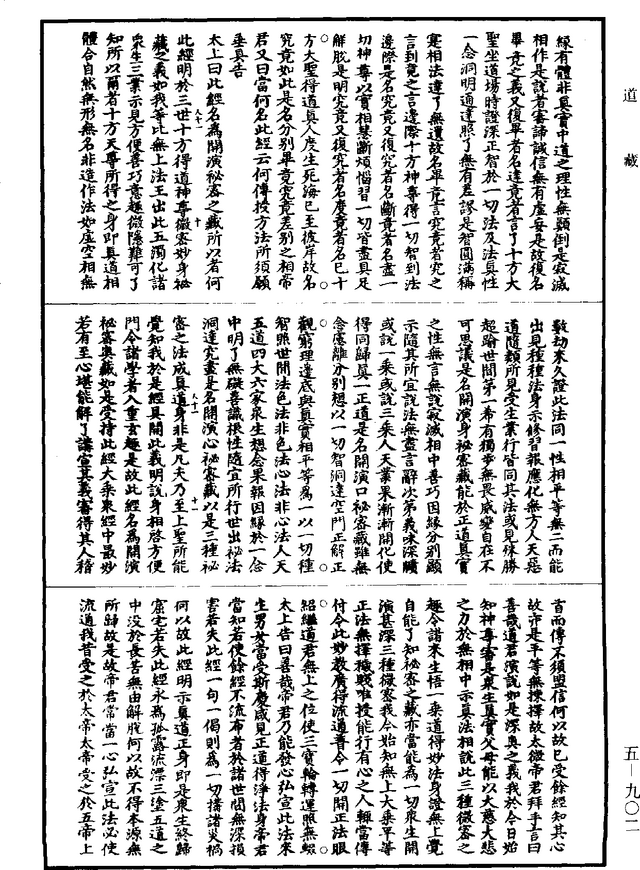 道藏
緣有體非真實中道之理性無顛倒是寂滅
相作是說者審諦誠信無有虛妄是故復名
畢竟之義又復畢者名達竟者言了十方大
聖坐道場時證深正智於一切法及法真性
一念洞明通達照了無有差謬是智圓滿稱
寔相法達了無遺故名畢竟言究竟者究之
言到竟之言邊際十方神尊得一切智到法
邊際是名究竟又復究者名斷竟者名盡一
切神尊以實相慧斷煩惱習一切皆盡具足
解脫是明究竟又復究者名度竟者名已十
方大聖得道真人度生死海已至彼岸故名
究竟如此是名分別畢竟究竟差別之相帝
君又曰當何名此經云何傳授方法所須願
垂具告
太上曰此經名為開演祕密之藏所以者何
此經明於三世十方得道神尊微密妙身祕
藏之義如我等比無上法王出此五濁化諸
衆生三業示見方便善巧意趣微隱難可了
知所以爾者十方天尊所得之身即真道相
體合自然無形無名非造作法如虛空相無
數劫來久證此法同一性相平等無二而能
出見種種法身示修習報應化無方人天惡
道隨類所見受生業行皆同其法或見殊勝
超踰世間第一希有獨步無畏威變自在不
可思議是名開演身祕密藏能於正道真實
之性無言無說寂滅相中善巧因緣分別顯
示隨其所宜說法無盡言辭次第義味深曠
或說一乘或說三乘人天業果漸漸開化使
得同歸真一正道是名開演口祕密藏雖無
念慮離分別想以一切智洞達空門正解正
觀窮理邊底與真實相平等為一以一切種
智照世間法色法非色法心法非心法人天
五道四大六家衆生想念果報因緣於一念
中明了無礙善識根性隨宜所行世出祕法
洞達究盡是名開演心祕密藏以是三種祕
密之法成真道身非是凡夫乃至上聖所能
覺知我於是經具開此義明說身相啓方便
門令諸學者入重玄趣是故此經名為開演
祕密奧藏如是受持此經大乘衆經中最妙
若有至心堪能解了講宣其義審得其人稽
首而傳不須盟信何以故已受餘經知其心
故沛是平等無揀擇故太微帝君拜手言曰
善哉道君演說如是深奧之義我於今日始
知神尊審是衆生真實父母能以大慈大悲
之力於無相中示真法相說此三種微密之
趣令諸來生悟一乘道得妙法身證無上覺
自能了知祕密之藏亦當能為一切衆生開
演甚深三種微密我今始知無上大乘平等
正法無擇穢賤唯投能行有心之人輒當傳
付令此妙教廣得流通普令一切開正法眼
紹繼道君無上之位使三寶輪轉運照無輟
太上告曰善哉帝君乃能發心弘宣此法來
生男女當受斯慶咸見正道得淨法身帝君
當知若使餘經不流布者於諸世間無深損
害若失此經一句一偈則為一切搆諸災禍
何以故此經明示真道正身即是衆生終歸
窟宅若失此經永為孤露流漂三塗五道之
中沒於長苦無由解脫何以故不得本源無
所歸故是故帝君常當一心弘宣此法必使
流通我昔受之於太帝太帝受之於五帝上
五—九〇二